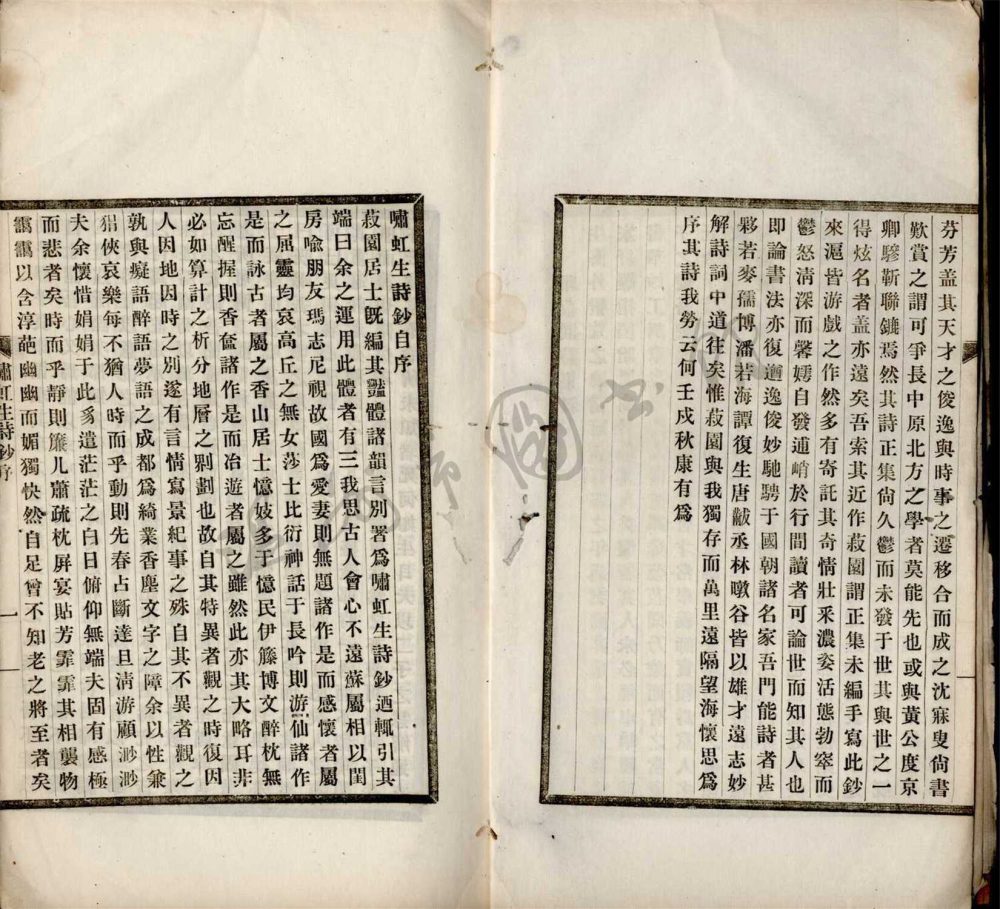 芬芳盖其天才之俊逸與時事之遷移合而成之沈寐叟尙書
歎賞之謂可爭長中原北方之學者莫能先也或與黃公度京
卿驂靳聯鑣焉然其詩正集尙久鬱而未發于世其與世之一
得炫名者盖亦遠矣吾索其近作菽園謂正集未編手寫此鈔
來滬皆游戲之作然多有寄託其奇情壯釆濃姿活態勃窣而
鬱怒淸深而馨嫮自發逋峭於行間讀者可論世而知其人也
即論書法亦復遒逸俊妙馳騁于國朝諸名家吾門能詩者甚
夥若麥孺博潘若海譚復生唐黻丞林暾谷皆以雄才遠志妙
解詩詞中道往矣惟菽園與我獨存而萬里遠隔望海懷思爲
序其詩我勞云何壬戌秋康有爲
嘯虹生詩鈔自序
菽園居士旣編其豔體諸韻言別署爲嘯虹生詩鈔迺輒引其
端曰余之運用此體者有三我思古人會心不遠蘇屬相以閨
房喩朋友瑪志尼視故國爲愛妻則無題諸作是而感懷者屬
之屈靈均哀高丘之無女莎士比衍神話于長吟則游仙諸作
是而詠古者屬之香山居士憶妓多于憶民伊籐博文醉枕無
忘醒握則香奩諸作是而冶遊者屬之雖然此亦其大略耳非
必如算計之析分地層之剝劃也故自其特異者觀之時復因
人因地因時之別遂有言情寫景紀事之殊自其不異者觀之
孰與癡語醉語夢語之成都爲綺業香塵文字之障余以性兼
狷俠哀樂每不猶人時而乎動則先春占斷達旦淸游顧渺渺
夫余懷惜娟娟于此豸遣茫茫之白日俯仰無端夫固有感極
而悲者矣時而乎靜則簾儿蕭疏枕屏宴貼芳霏霏其相襲物
靄靄以含淳葩幽幽而媚獨快然自足曾不知老之將至者矣
嘯虹生詩鈔序
一